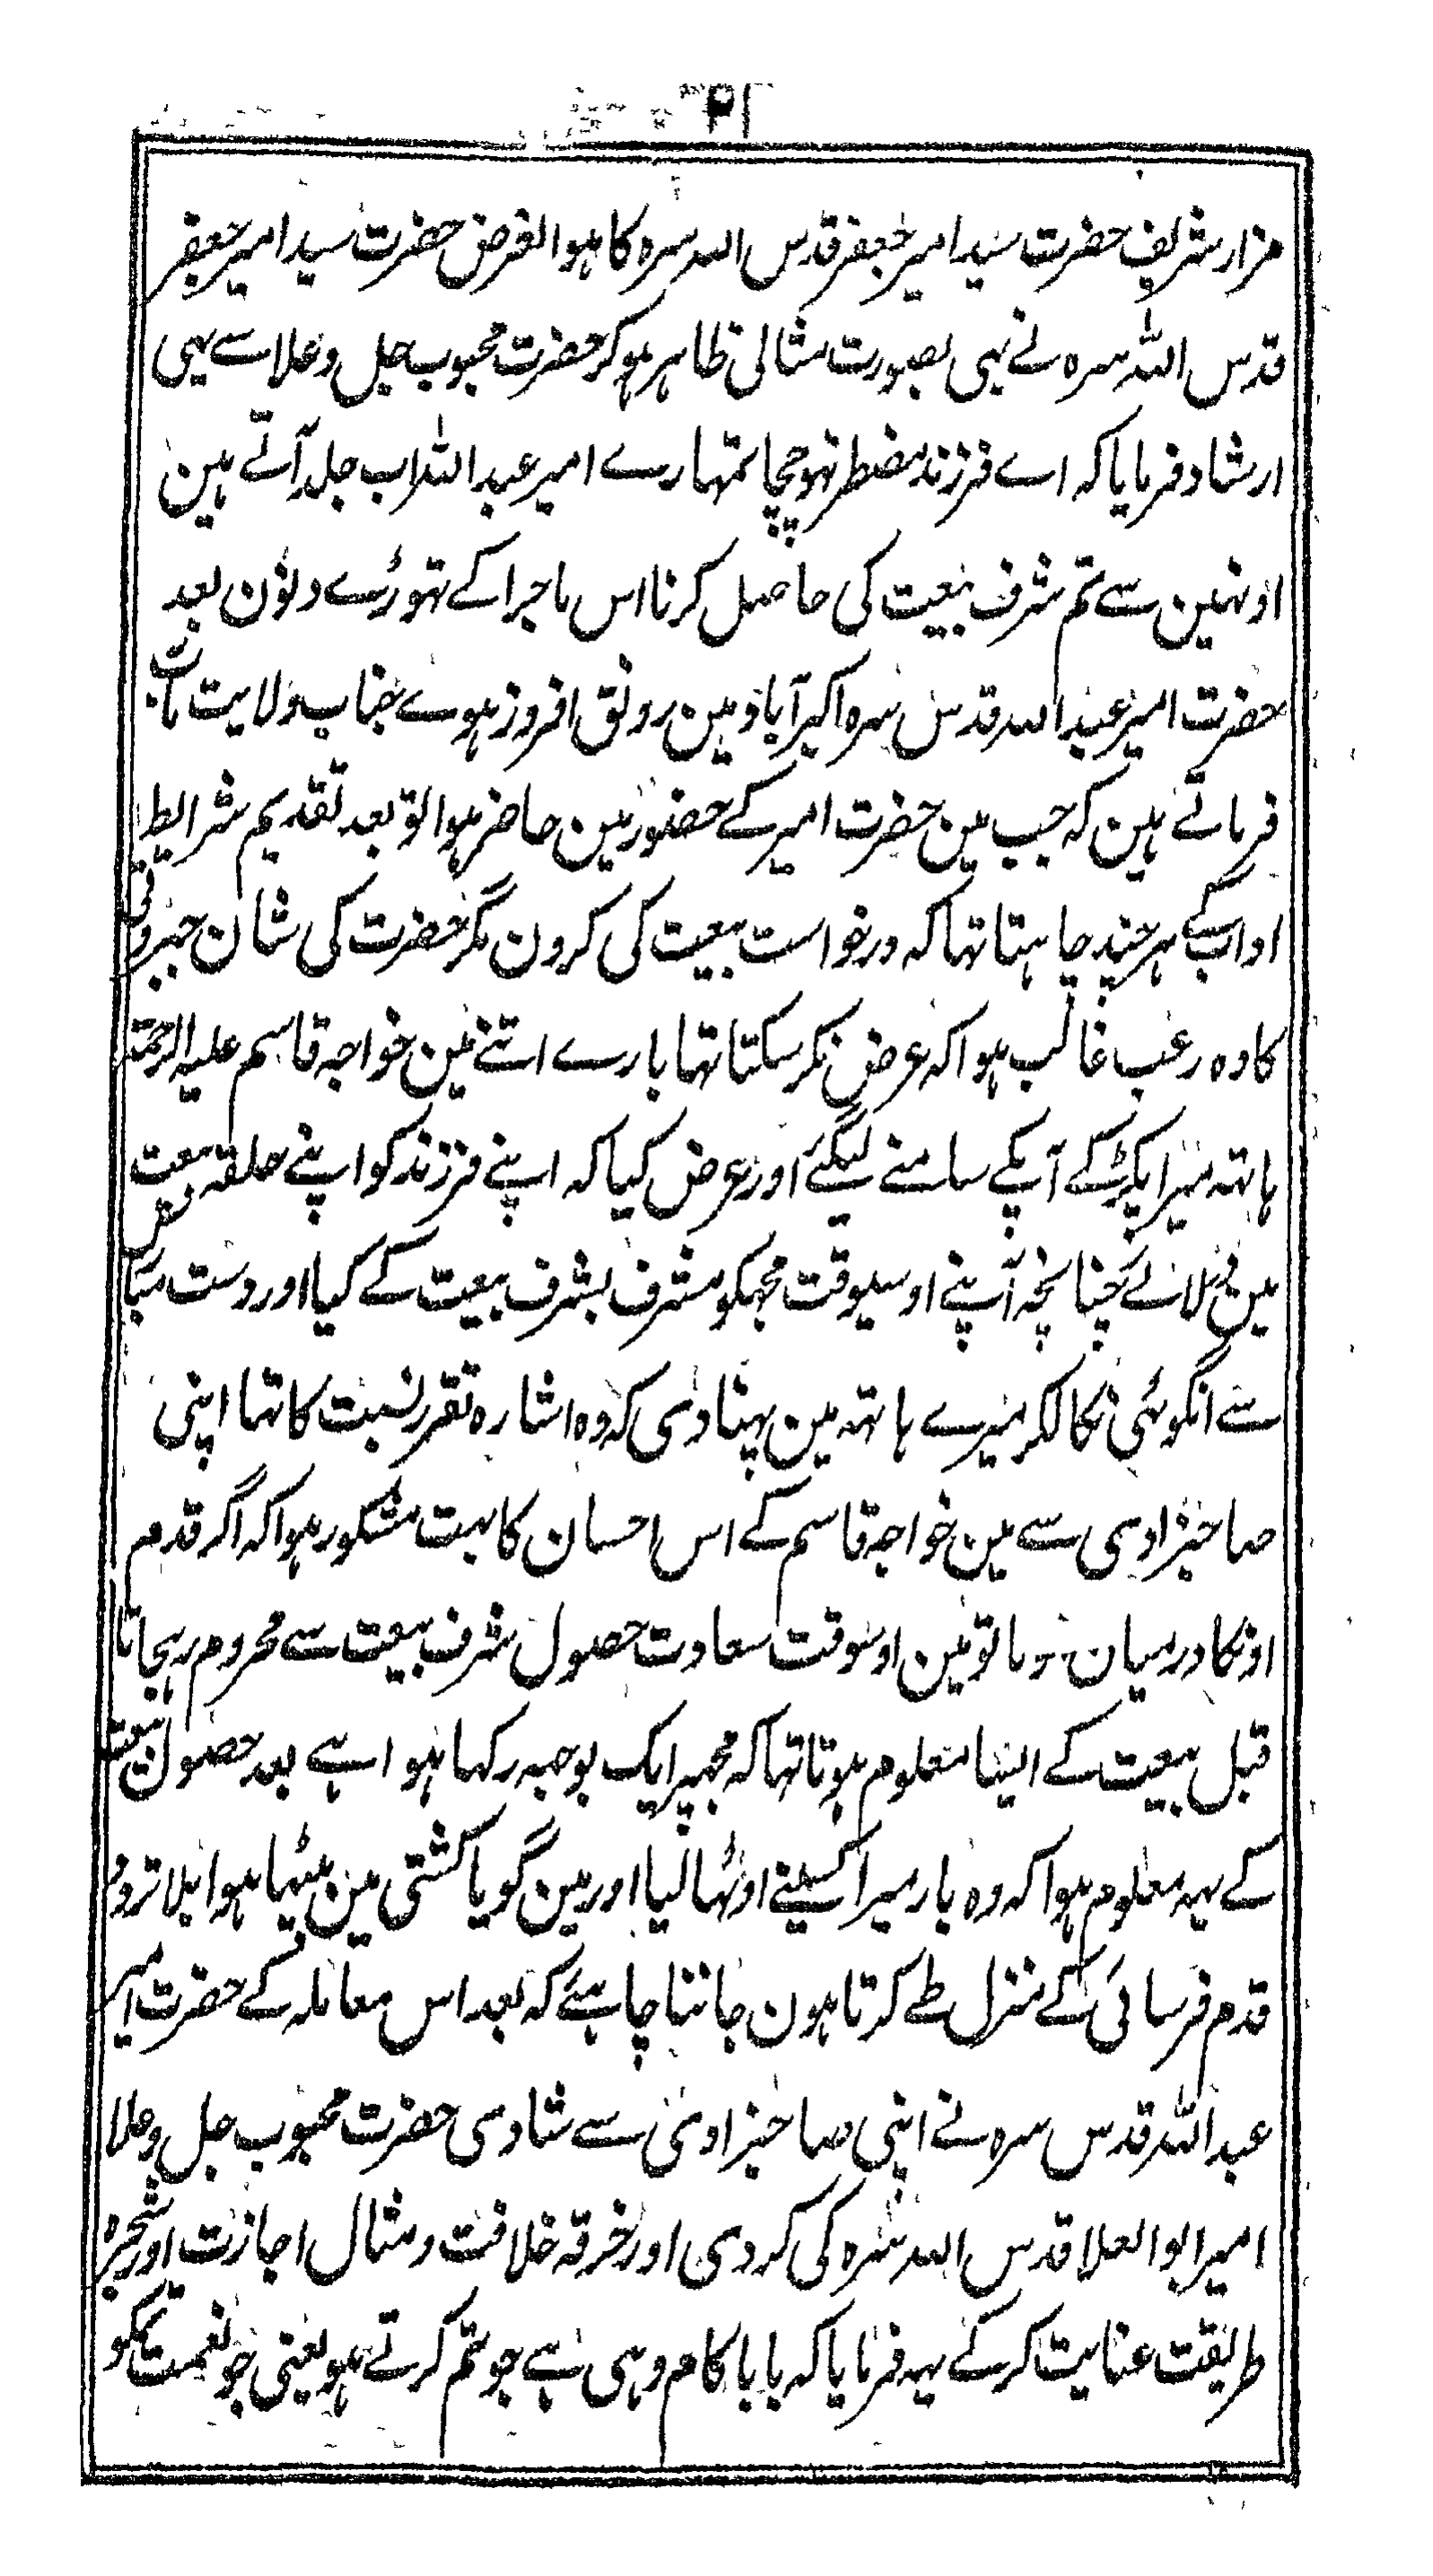 مزار شریف حضرت سید امیر جعفر قدس اللہ سرہ کا ہوا الغرض حضرت سید امیر جعفر
قدس اللہ سرہ نے بھی بصورت مثالی ظاہر ہو کر حضرت محبوب جل و علا سے یہی
ارشاد فرمایا کہ اے فرزند مضطر نہو چچا تمہارے امیر عبد اللہ اب جلد آتے ہین
اونہین سے تم شرف بیعت کی حاصل کرنا اس ماجرا کے تہوڑے دنون بعد
حضرت امیر عبد اللہ قدس سرہ اکبرآباد مین رونق افروز ہوے جناب ولایت مآب
فرماتے ہین کہ جب مین حضرت امیر کے حضور مین حاضر ہوا تو بعد تقدیم شرایط
اداب کے ہر چند چاہتا تہا کہ درخواست بیعت کی کرون مگر حضرت کی شان جبروتی
کا وہ رعب غالب ہوا کہ عرض نکر سکتا تہا بارے اتنے مین خواجہ قاسم علیہ الرحمۃ
ہاتہ میرا پکڑ کے آپکے سامنے لیگئے اور عرض کیا کہ اپنے فرزند کو اپنے حلقہ بیعت
مین لائے چنانچہ آپنے اوسیوقت مجہکو مشرف بشرف بیعت کے کیا اور دست مبارک
سے انگوٹہی نکالکر میرے ہاتہ مین پہنا دی کہ وہ اشارہ تقرر نسبت کا تہا اپنی
صاحبزادی سے مین خواجہ قاسم کے اس احسان کا بہت مشکور ہوا کہ اگر قدم
اونکا درمیان نہوتا تو مین اوسوقت سعادت حصول شرف بیعت سے محروم رہجاتا
قبل بیعت کے ایسا معلوم ہوتا تہا کہ مجہپر ایک بوجہہ رکہا ہوا ہے بعد حصول بیعت
کے یہہ معلوم ہوا کہ وہ بار میرا کسینے اوٹہا لیا اور مین گویا کشتی مین بیٹہا ہوا بلا تردد
قدم فرسائی کے منزل طے کرتا ہون جاننا چاہئے کہ بعد اس معاملہ کے حضرت امیر
عبد اللہ قدس سرہ نے اپنی صاحبزادی سے شادی حضرت محبوب جل و علا
امیر ابو العلا قدس اللہ سرہ کی کر دی اور خرقہ خلافت و مثال اجازت اور شجرہ
طریقت عنایت کر کے یہہ فرمایا کہ بابا کام وہی ہے جو تم کرتے ہو یعنی جو نعمت تمکو